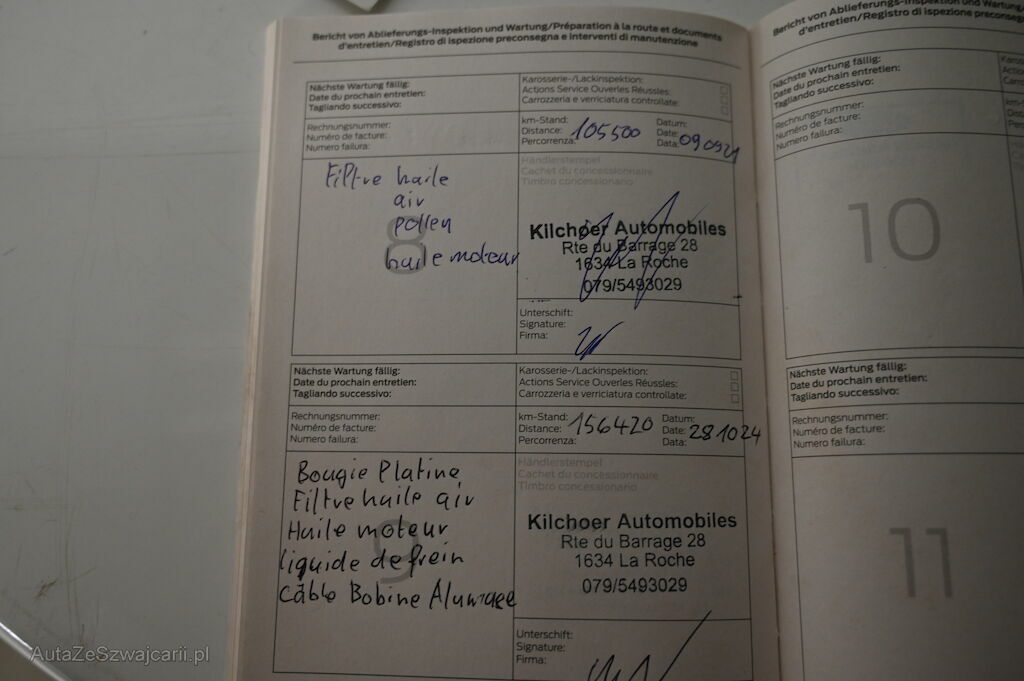 Bericht von Ablieferungs-Inspektion und Wartung/Préparation à la route et documents
d'entretien/Registro di ispezione preconsegna e interventi di manutenzione
Nächste Wartung fällig:
Date du prochain entretien:
Tagliando successivo:
Karosserie-/Lackinspektion:
Actions Service Ouverles Réussles:
Carrozzeria e verriciatura controllate:
Rechnungsnummer:
Numéro de facture:
Numero failura:
km-Stand:
Distance: 105500
Percorrenza:
Datum:
Date:
Data: 090921
Filtre huile
air
pollen
huile moteur
8
Händlerstempel
Cachet du concessionnaire
Timbro concessionario
Kilchoer Automobiles
Rte du Barrage 28
1634 La Roche
079/5493029
Unterschift:
Signature:
Firma:
Nächste Wartung fällig:
Date du prochain entretien:
Tagliando successivo:
Karosserie-/Lackinspektion:
Actions Service Ouverles Réussles:
Carrozzeria e verriciatura controllate:
Rechnungsnummer:
Numéro de facture:
Numero failura:
km-Stand:
Distance: 156420
Percorrenza:
Datum:
Date: 281024
Data:
Bougie Platine
Filtre huile air
Huile moteur
liquide de frein
Câble Bobine
9
Händlerstempel
Cachet du concessionnaire
Timbro concessionario
Kilchoer Automobiles
Rte du Barrage 28
1634 La Roche
079/5493029
Unterschift:
Signature:
Firma:
Bericht von Ablieferungs-Inspektion und Wartung/
d'entretien/Registro di ispezione preconsegna
Nächste Wartung fällig:
Date du prochain entretien:
Tagliando successivo:
Rechnungsnummer:
Numéro de facture:
Numero failura:
10
Nächste Wartung fällig:
Date du prochain entretien:
Tagliando successivo:
Rechnungsnummer:
Numéro de facture:
Numero failura:
11
AutaZeSzwajcarii.pl